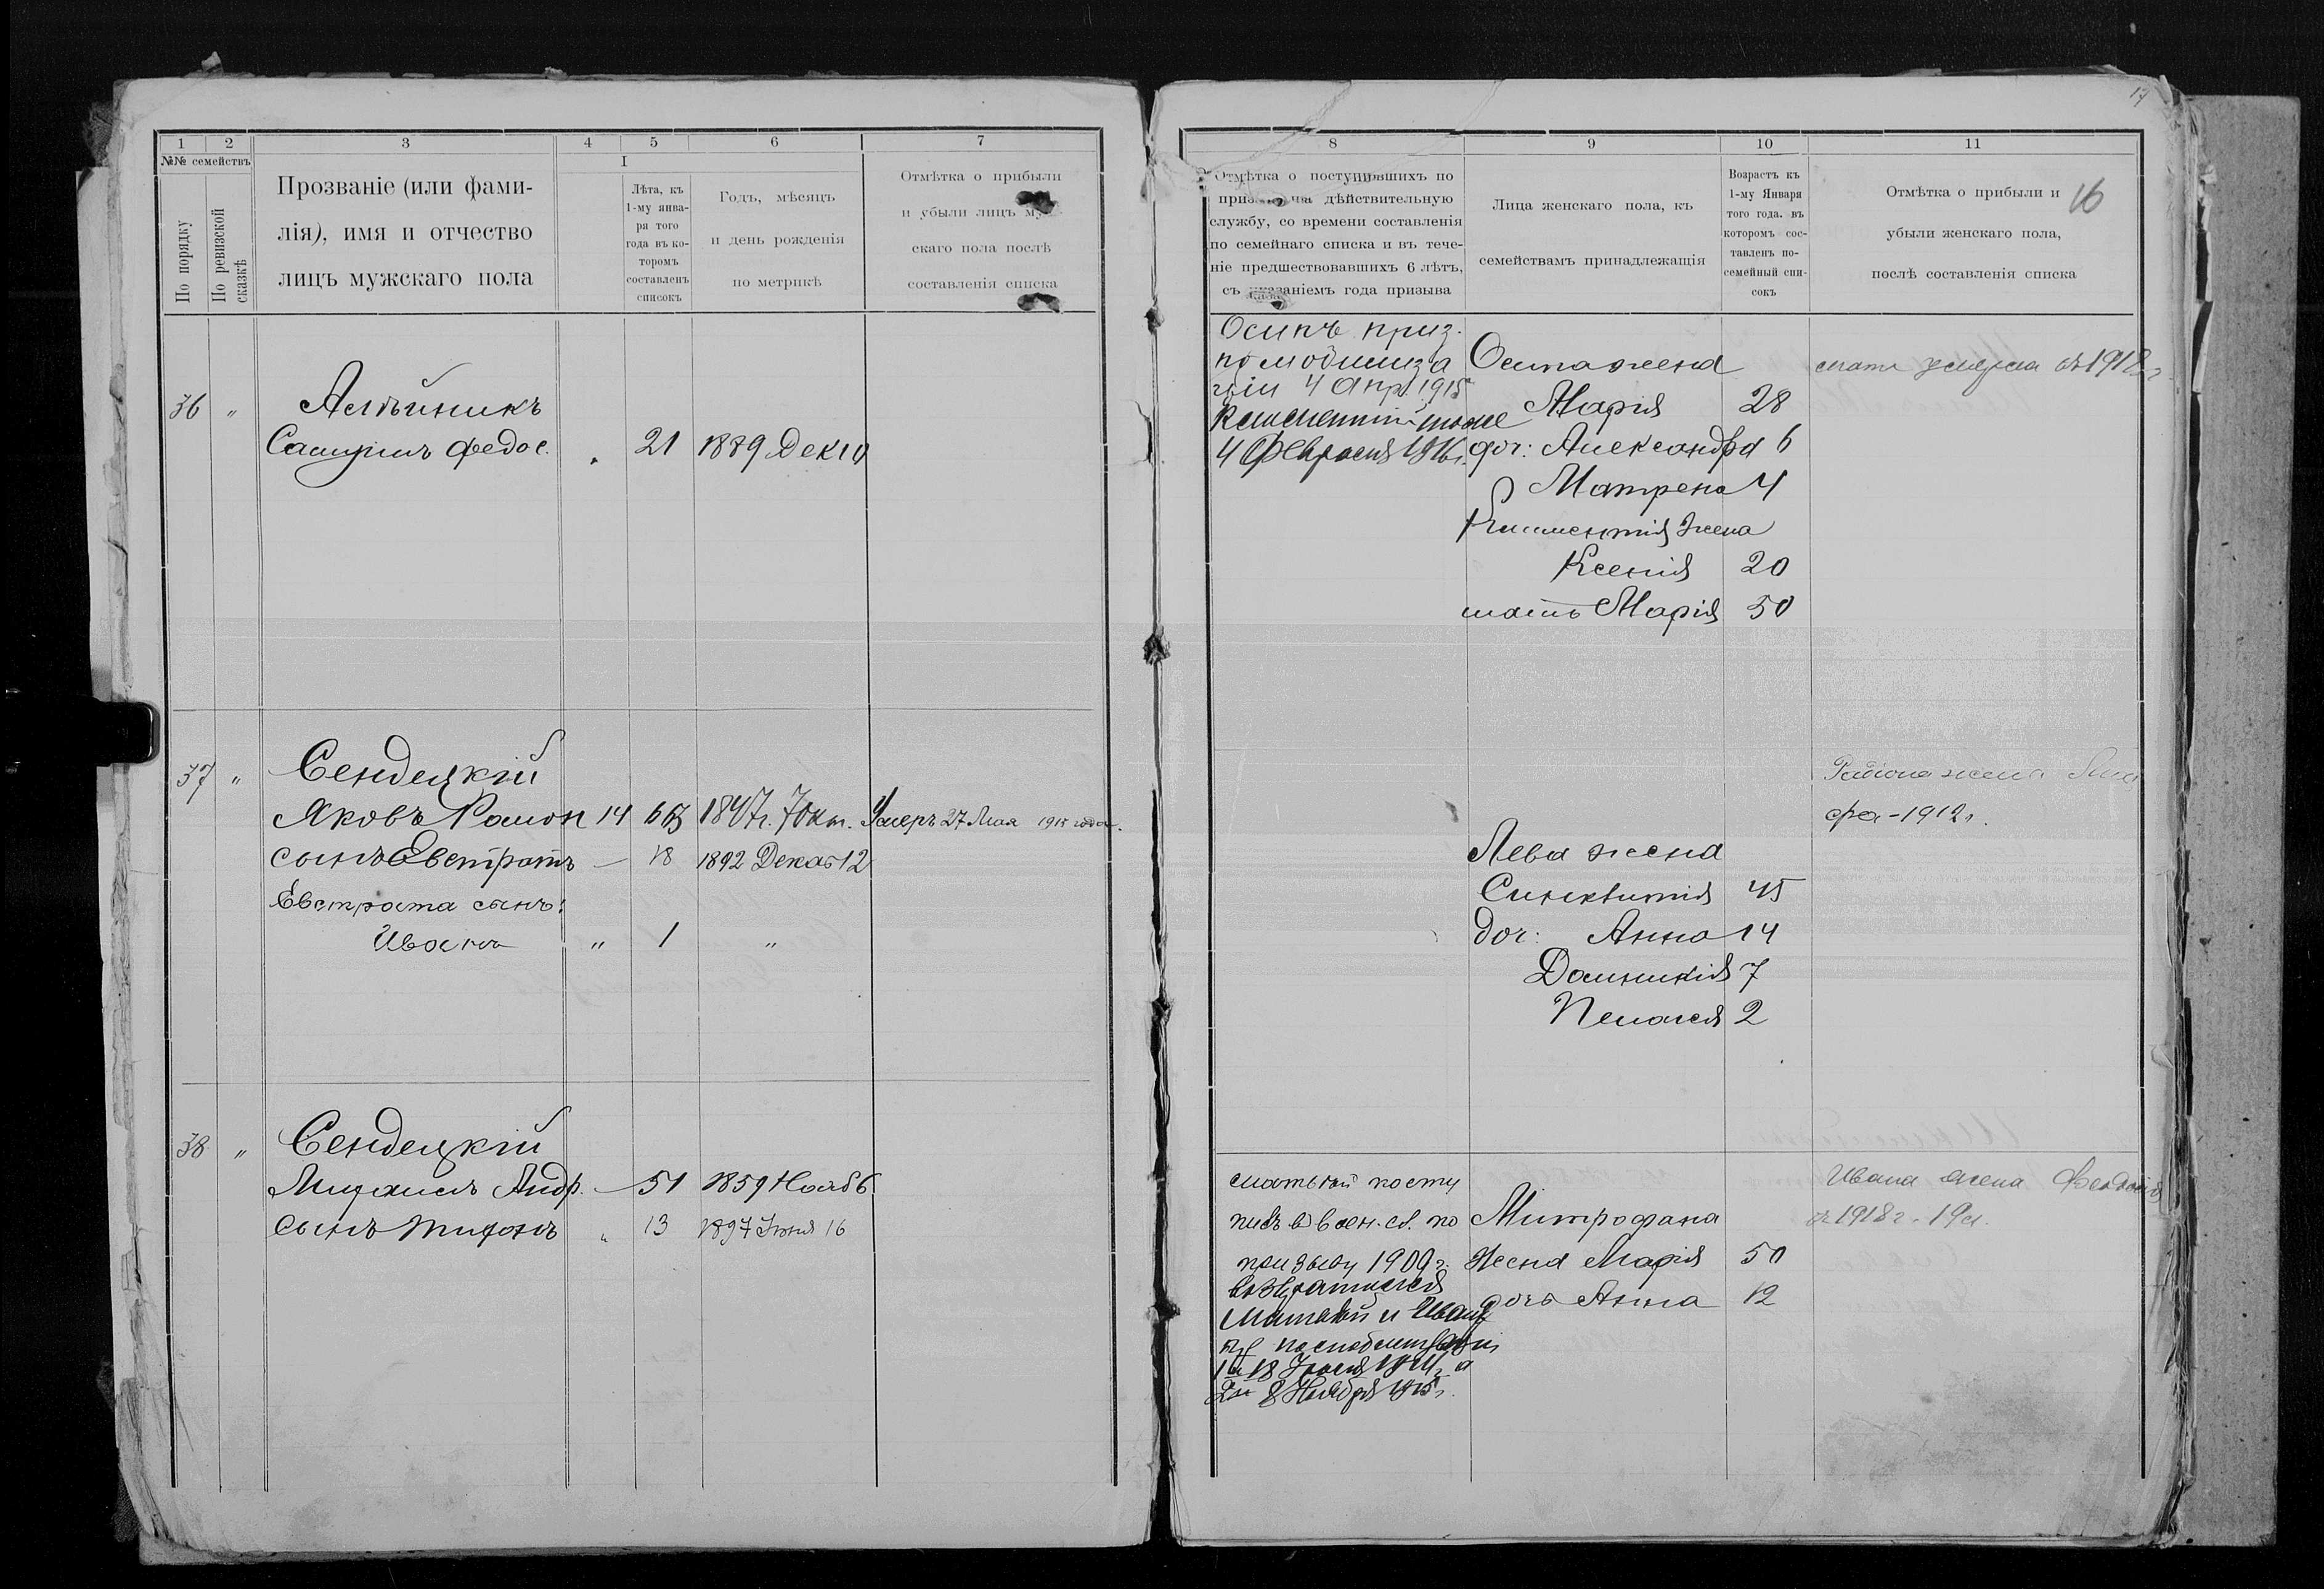 1 2 3 4 5 6 7
№№ семействъ
По порядку
По ревизской сказкѣ
Прозваніе (или фами-
лія), имя и отчество
лицъ мужскаго пола
I
Лѣта, къ
1-му янва-
ря того
года въ ко-
торомъ
составленъ
списокъ
Годъ, мѣсяцъ
и день рожденія
по метрикѣ
Отмѣтка о прибыли
и убыли лицъ муж-
скаго пола послѣ
составленія списка
36 "
Самуилъ Федос. 21 1889 Дек 10
37 " Сендецкій
Яковъ Рамон 14 63 1847г. 7 Окт. Умеръ 27 Мая 1915 года.
сынъ Евстратъ — 18 1892 Декаб 12
Евстрата сынъ:
Иванъ " 1 "
38 " Сендецкій
Михаилъ Андр. — 51 1859 Нояб 6
сынъ Тихонъ " 13 1897 Іюня 16
17
8 9 10 11
Отмѣтка о поступившихъ по
призыву на дѣйствительную
службу, со времени составленія
по семейнаго списка и въ тече-
ніе предшествовавшихъ 6 лѣтъ,
съ указаніемъ года призыва
Лица женскаго пола, къ
семействамъ принадлежащія
Возрастъ къ
1-му Января
того года. въ
которомъ сос-
тавленъ по-
семейный спи-
сокъ
Отмѣтка о прибыли и
убыли женскаго пола,
послѣ составленія списка
16
Осипъ приз.
по мобилиза
ціи 4 Апр. 1915
Климентій тоже
4 Февраля 1916г.
Осипа жена
Марія 28
доч: Александра 6
Матрена 4
Климентія жена
Ксенія 20
мать Марія 50
мать умерла въ 1918 г
Лева жена
Синклитія 45
доч: Анна 14
Домникія 7
Пелагея 2
Радіона жена
фа - 1912г.
Матвѣй посту
пилъ въ воен. сл. по
призыву 1909 г.
возвратился
Матвѣй и Иванъ
по мобилизаціи
1й 18 Іюля 1914г. а
2й 8 Ноября 1915г.
Митрофана
жена Марія 50
дочь Анна 12
Ивана жена Феодосія
въ 1918 г. - 19 л.